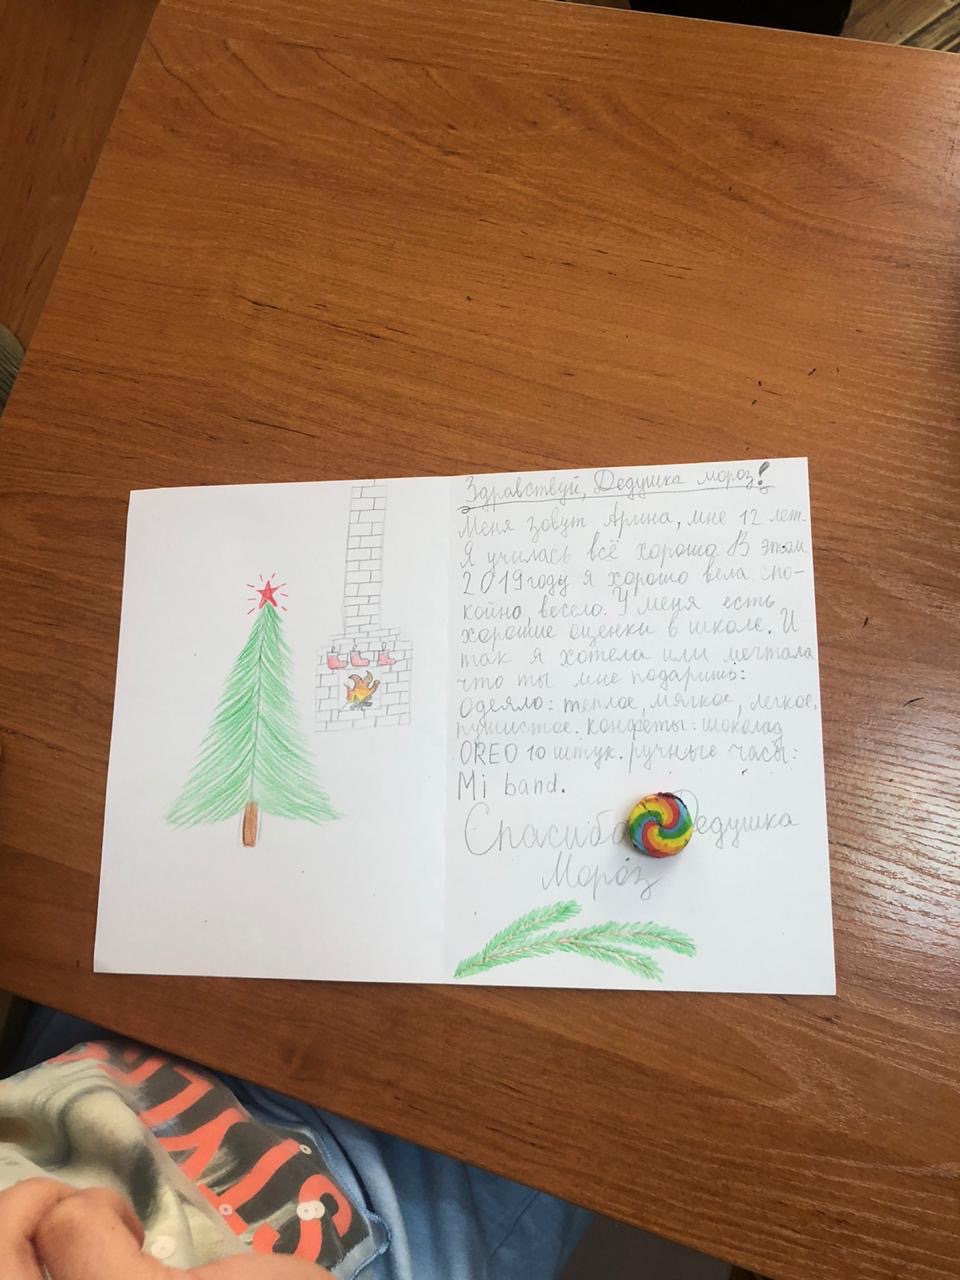 Здравствуй, Дедушка мороз!
Меня зовут Арина, мне 12 лет.
Я училась всё хорошо. В этом
2019 году я хорошо вела спо-
койно, весело. У меня есть
хорошие оценки в школе. И
так я хотела или мечтала
что ты мне подаришь:
Одеяло: теплое, мягкое, легкое,
пушистое. конфеты: шоколад
OREO 10 штук. ручные часы:
Mi band.
Спасибо Дедушка
Мороз
STYLE